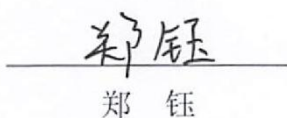 郑钰
郑 钰